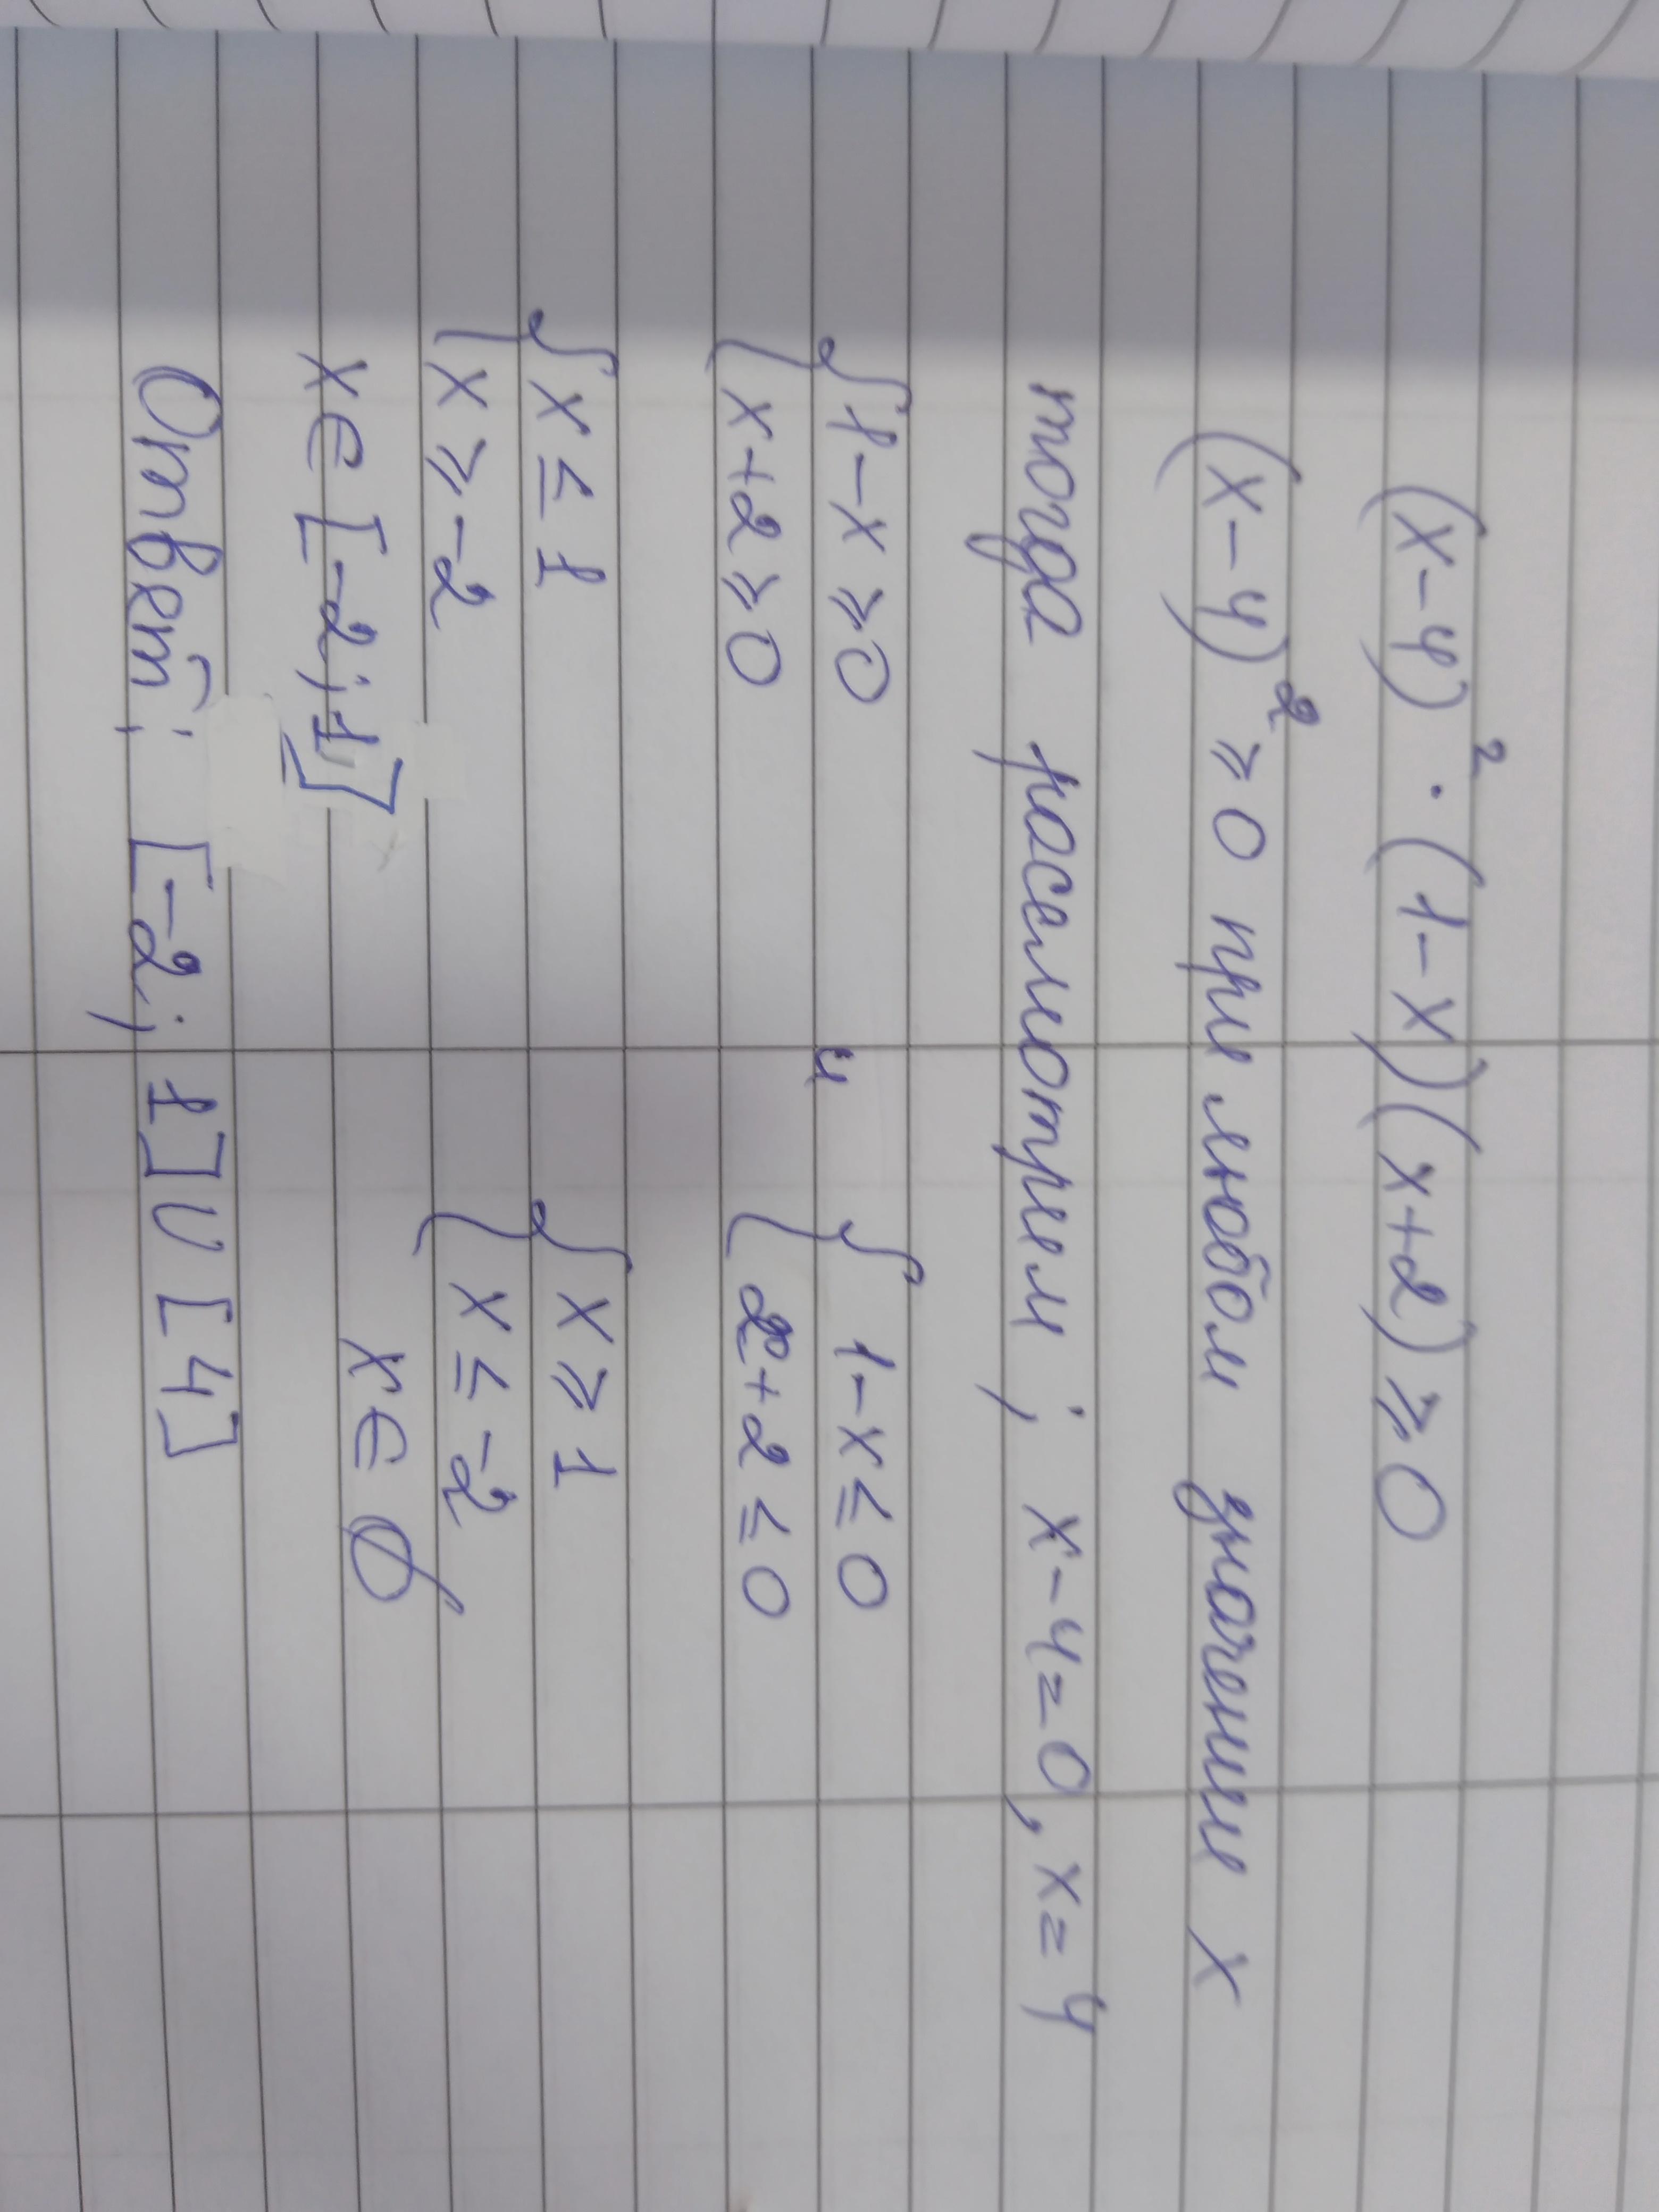 (x-4)² · (1-x)(x+2) ≥ 0
(x-4)² ≥ 0 при любом значении x
тогда рассмотрим; x-4=0, x=4
{ 1-x ≥ 0 и { 1-x ≤ 0
{ x+2 ≥ 0 { x+2 ≤ 0
{ x ≤ 1 { x ≥ 1
{ x ≥ -2 { x ≤ -2
x ∈ [-2; 1] x ∈ ∅
Ответ: [-2; 1] ∪ [4]